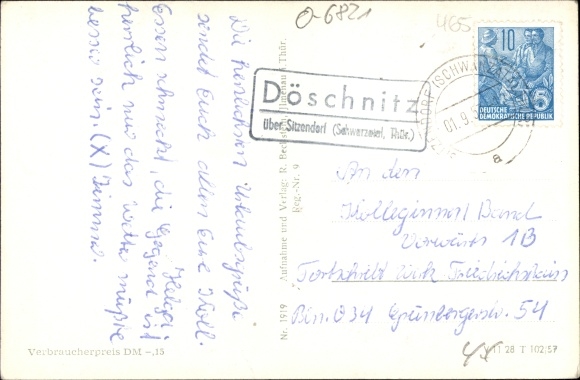 O-6821
465
Die herzlichsten Urlaubsgrüße
sendet Euch allen Eure Koll.
Helga.
Essen schmeckt, die Gegend ist
herrlich nur das Wetter müßte
besser sein. (X) Zimmer.
Verbraucherpreis DM -,15
Nr. 1919 Aufnahme und Verlag: R. Bechstein, Ilmenau i. Thür.
Reg.-Nr. 9
Döschnitz
über Sitzendorf (Schwarzatal, Thür.)
10
DEUTSCHE
DEMOKRATISCHE REPUBLIK
5
(SCHW
01.9.5
a
An den
Kolleginnen
Vorwärts 1B
Fortschritt Friedrichshain
Bln. O 34 Grünbergerstr. 54
V 11 28 T 102 57